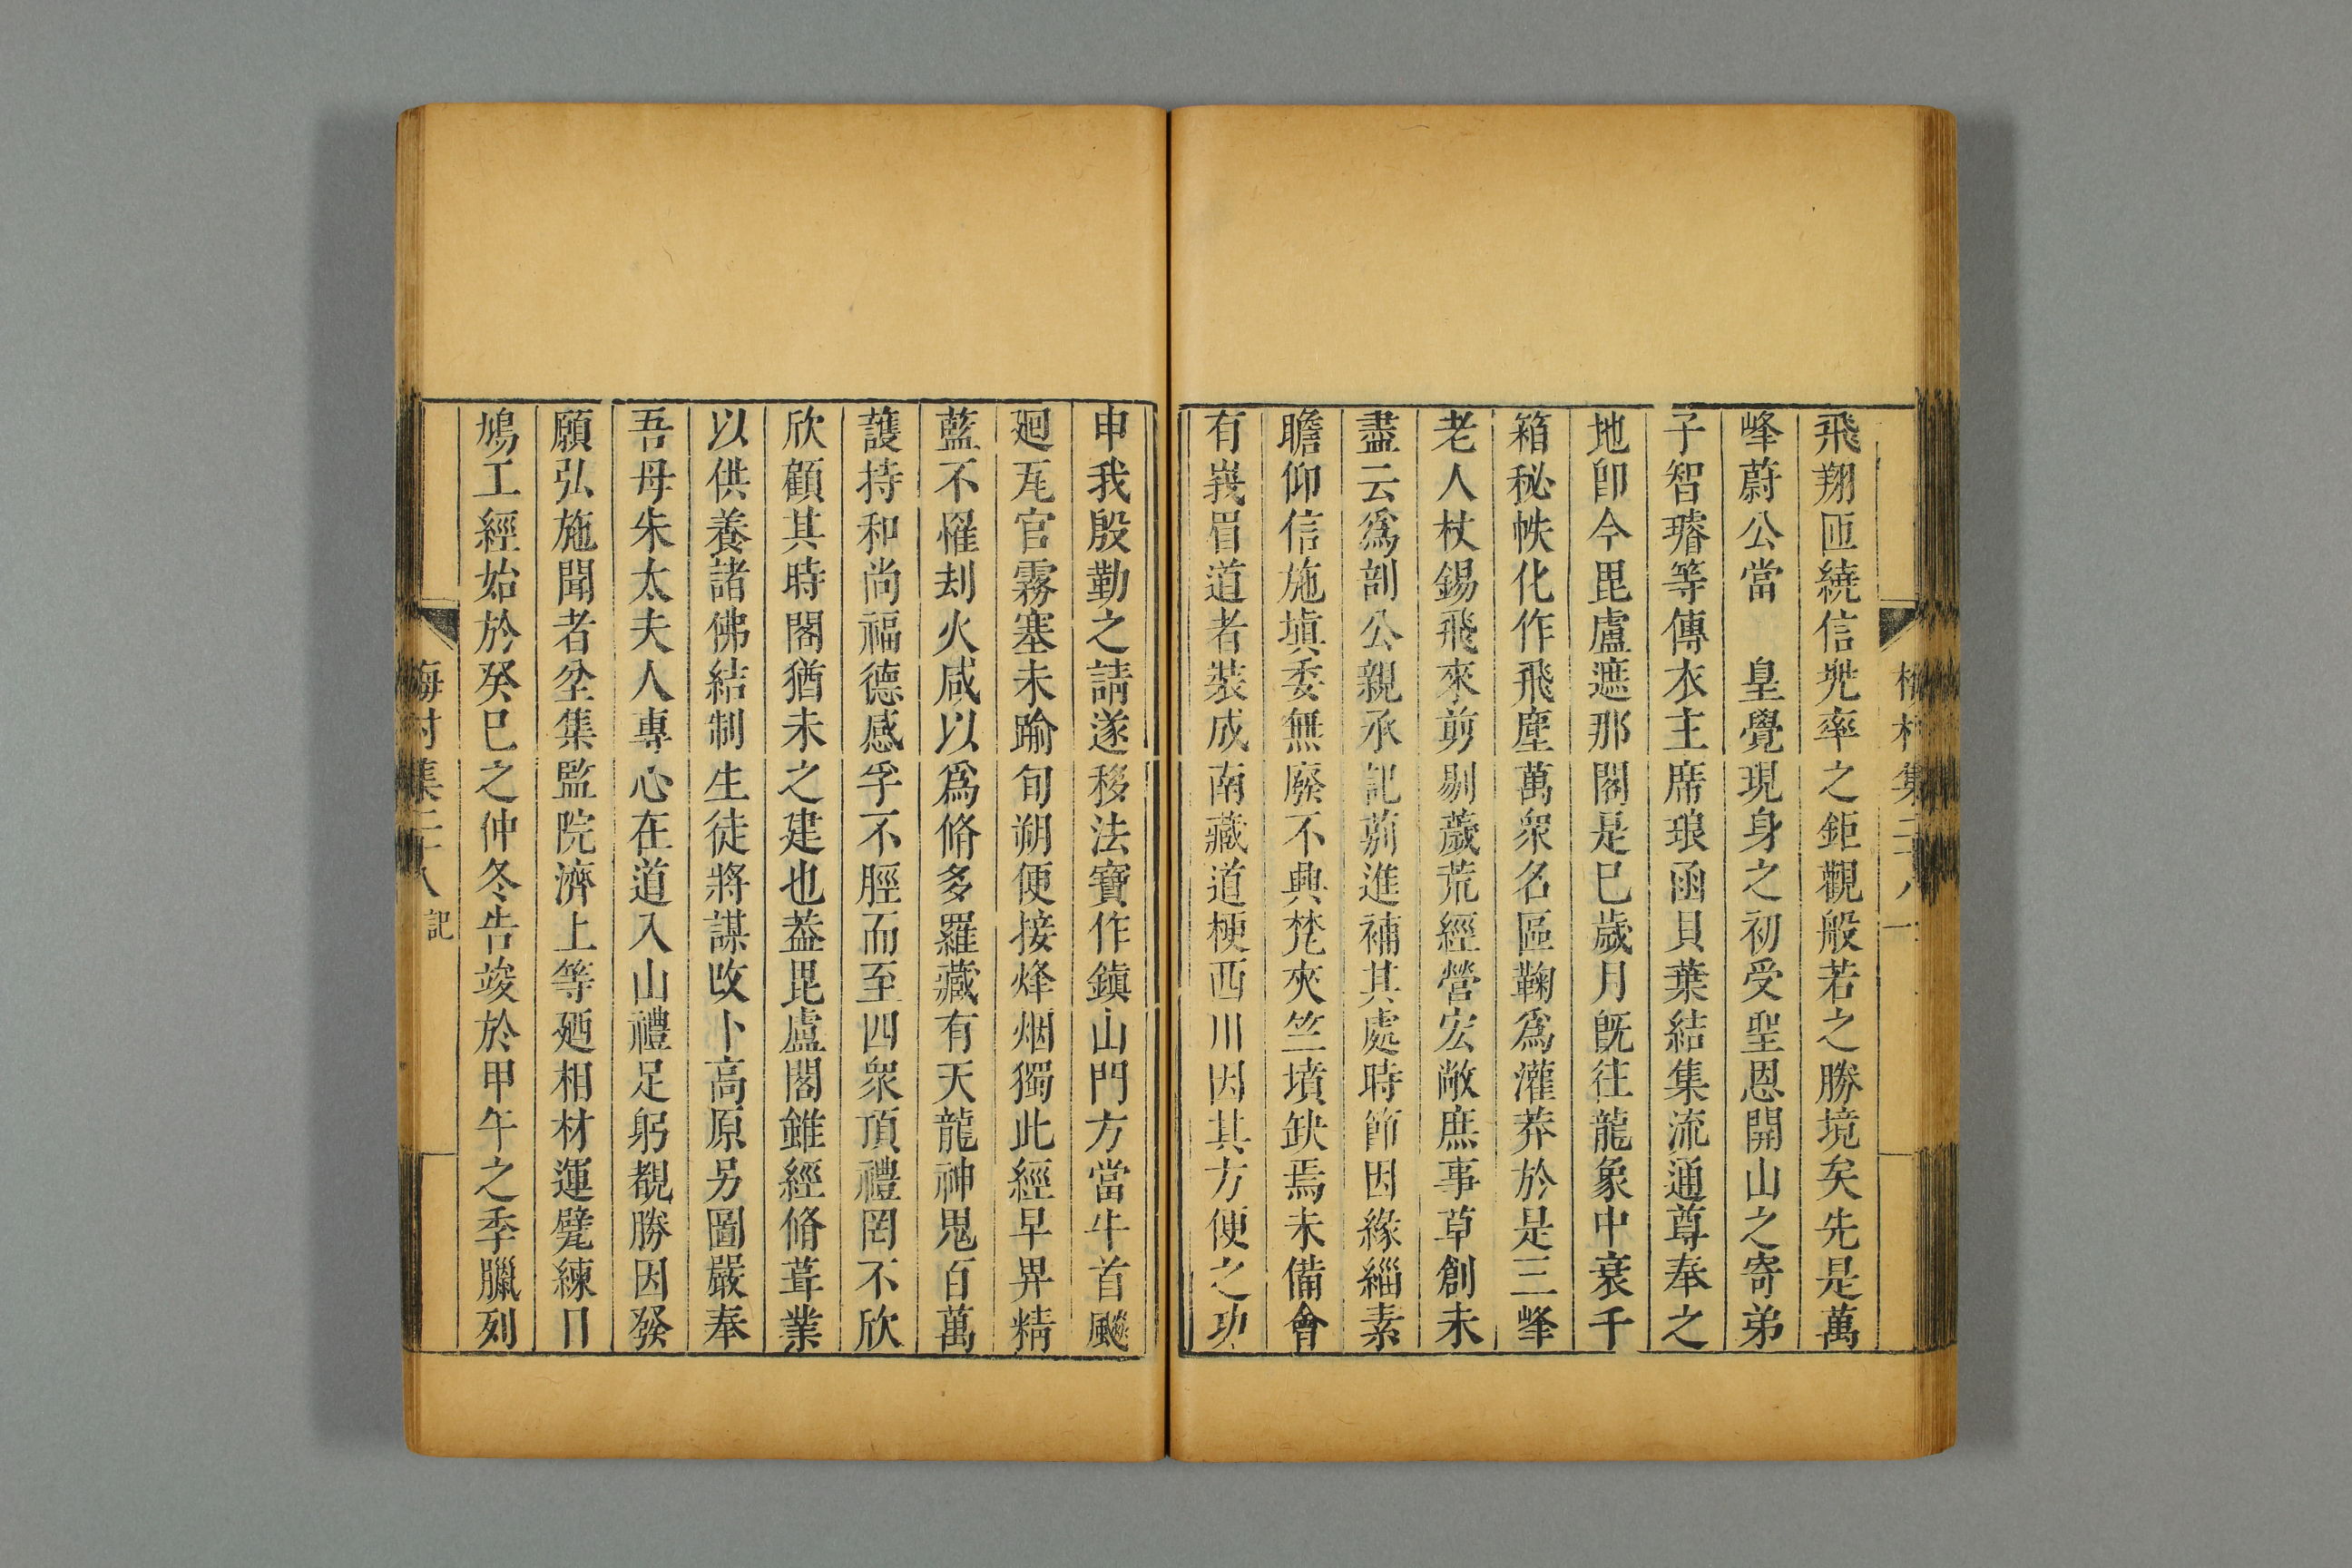 飛翔匝繞信兠率之鉅觀般若之勝境矣先是萬
峰蔚公當 皇覺現身之初受聖恩開山之寄弟
子智璿等傳衣主席琅函貝葉結集流通尊奉之
地卽今毘盧遮那閣是巳歲月旣往龍象中衰千
箱秘帙化作飛塵萬衆名區鞠爲灌莽於是三峰
老人杖錫飛來剪剔薉荒經營宏敞庶事草創未
盡云爲剖公親承記莂進補其處時節因緣緇素
瞻仰信施塡委無廢不興梵夾竺墳缺焉未備會
有峩眉道者裝成南藏道梗西川因其方便之功
申我殷勤之請遂移法寶作鎭山門方當牛首颷
廻瓦官霧塞未踰旬朔便接烽烟獨此經早畀精
藍不罹刦火咸以爲脩多羅藏有天龍神鬼百萬
護持和尚福德感孚不脛而至四衆頂禮罔不欣
欣顧其時閣猶未之建也葢毘盧閣雖經脩葺業
以供養諸佛結制生徒將謀改卜高原另圖嚴奉
吾母朱太夫人專心在道入山禮足躬覩勝因發
願弘施聞者坌集監院濟上等廼相材運甓練日
鳩工經始於癸巳之仲冬告竣於甲午之季臘列
梅村集二十八 記